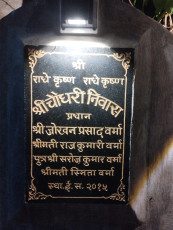 श्री
राधे कृष्ण राधे कृष्ण
श्री चौधरी निवास
प्रधान
श्री जोखन प्रसाद वर्मा
श्रीमती राज कुमारी वर्मा
पुत्र श्री सरोज कुमार वर्मा
श्रीमती स्मिता वर्मा
स्था.ई.स. २०१५